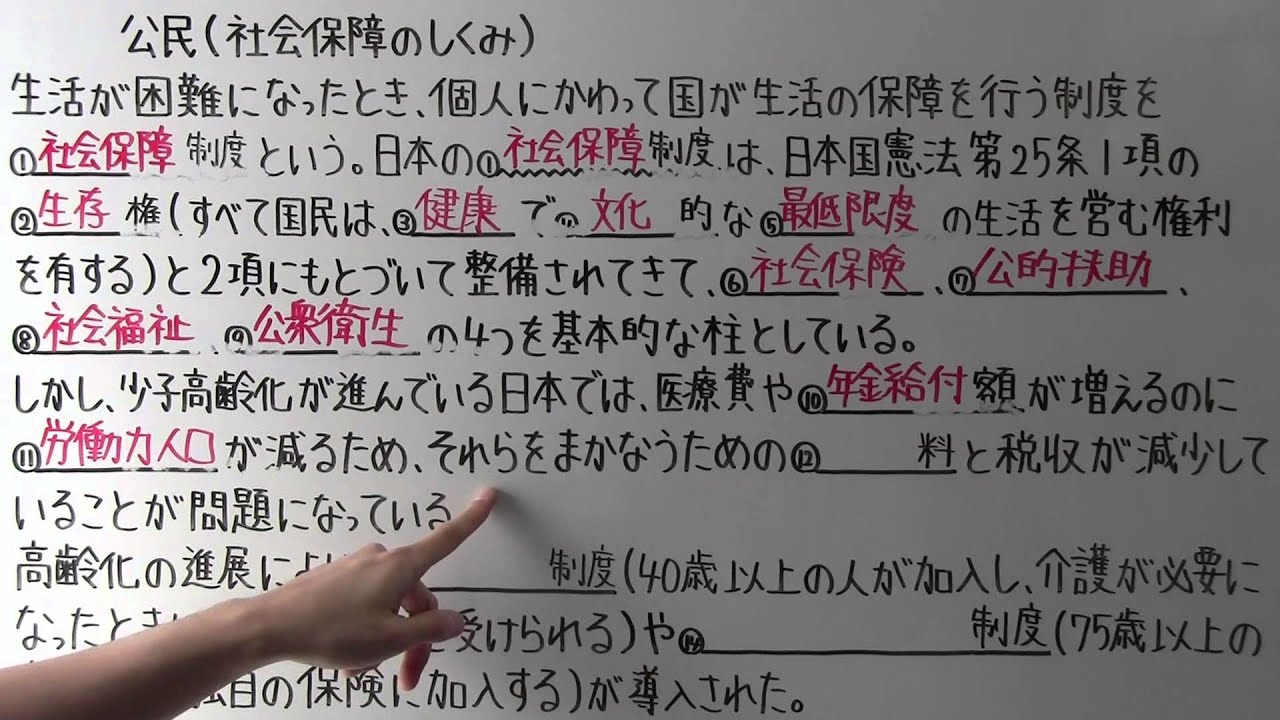 公民(社会保障のしくみ)
生活が困難になったとき、個人にかわって国が生活の保障を行う制度を
①社会保障制度という。日本の①社会保障制度は、日本国憲法第25条1項の
②生存権(すべて国民は、③健康で④文化的な⑤最低限度の生活を営む権利
を有する)と2項にもとづいて整備されてきて、⑥社会保険、⑦公的扶助、
⑧社会福祉、⑨公衆衛生の4つを基本的な柱としている。
しかし、少子高齢化が進んでいる日本では、医療費や⑩年金給付額が増えるのに
⑪労働力人口が減るため、それらをまかなうための⑫料と税収が減少して
いることが問題になっている
高齢化の進展によ制度(40歳以上の人が加入し、介護が必要に
なったときに受けられる)や⑭制度(75歳以上の
自の保険に加入する)が導入された。